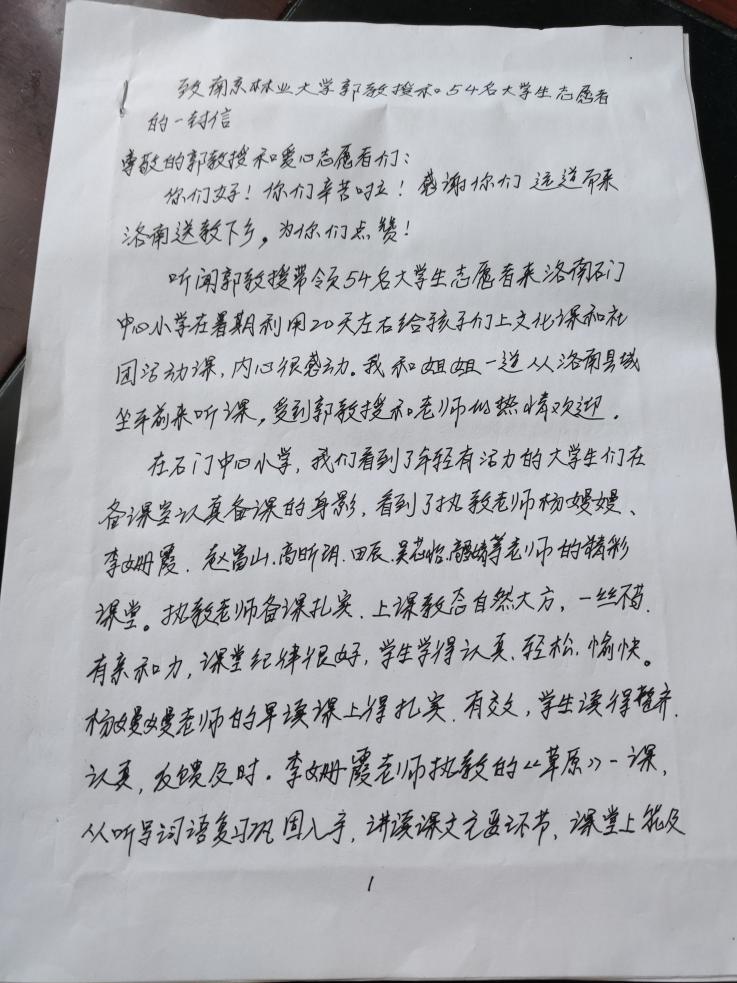 致南京林业大学郭教授和54名大学生志愿者
的一封信
尊敬的郭教授和爱心志愿者们:
你们好!你们辛苦啦!感谢你们远道而来
洛南送教下乡,为你们点赞!
听闻郭教授带领54名大学生志愿者来洛南石门
中心小学在暑期利用20天左右给孩子们上文化课和社
团活动课,内心很感动。我和姐姐一道从洛南县城
坐车前来听课,受到郭教授和老师的热情欢迎。
在石门中心小学,我们看到了年轻有活力的大学生们在
备课室认真备课的身影,看到了执教老师杨嫚嫚、
李姗霞、赵富山、高昕玥、田辰、吴芯怡、等老师的精彩
课堂。执教老师备课扎实、上课教态自然大方,一丝不苟、
有亲和力,课堂纪律很好,学生学得认真、轻松、愉快。
杨嫚嫚老师的早读课上得扎实、有效,学生读得整齐、
认真,反馈及时。李姗霞老师执教的《草原》一课,
从听写词语复习巩固入手,讲读课文主要环节,课堂上能及
1